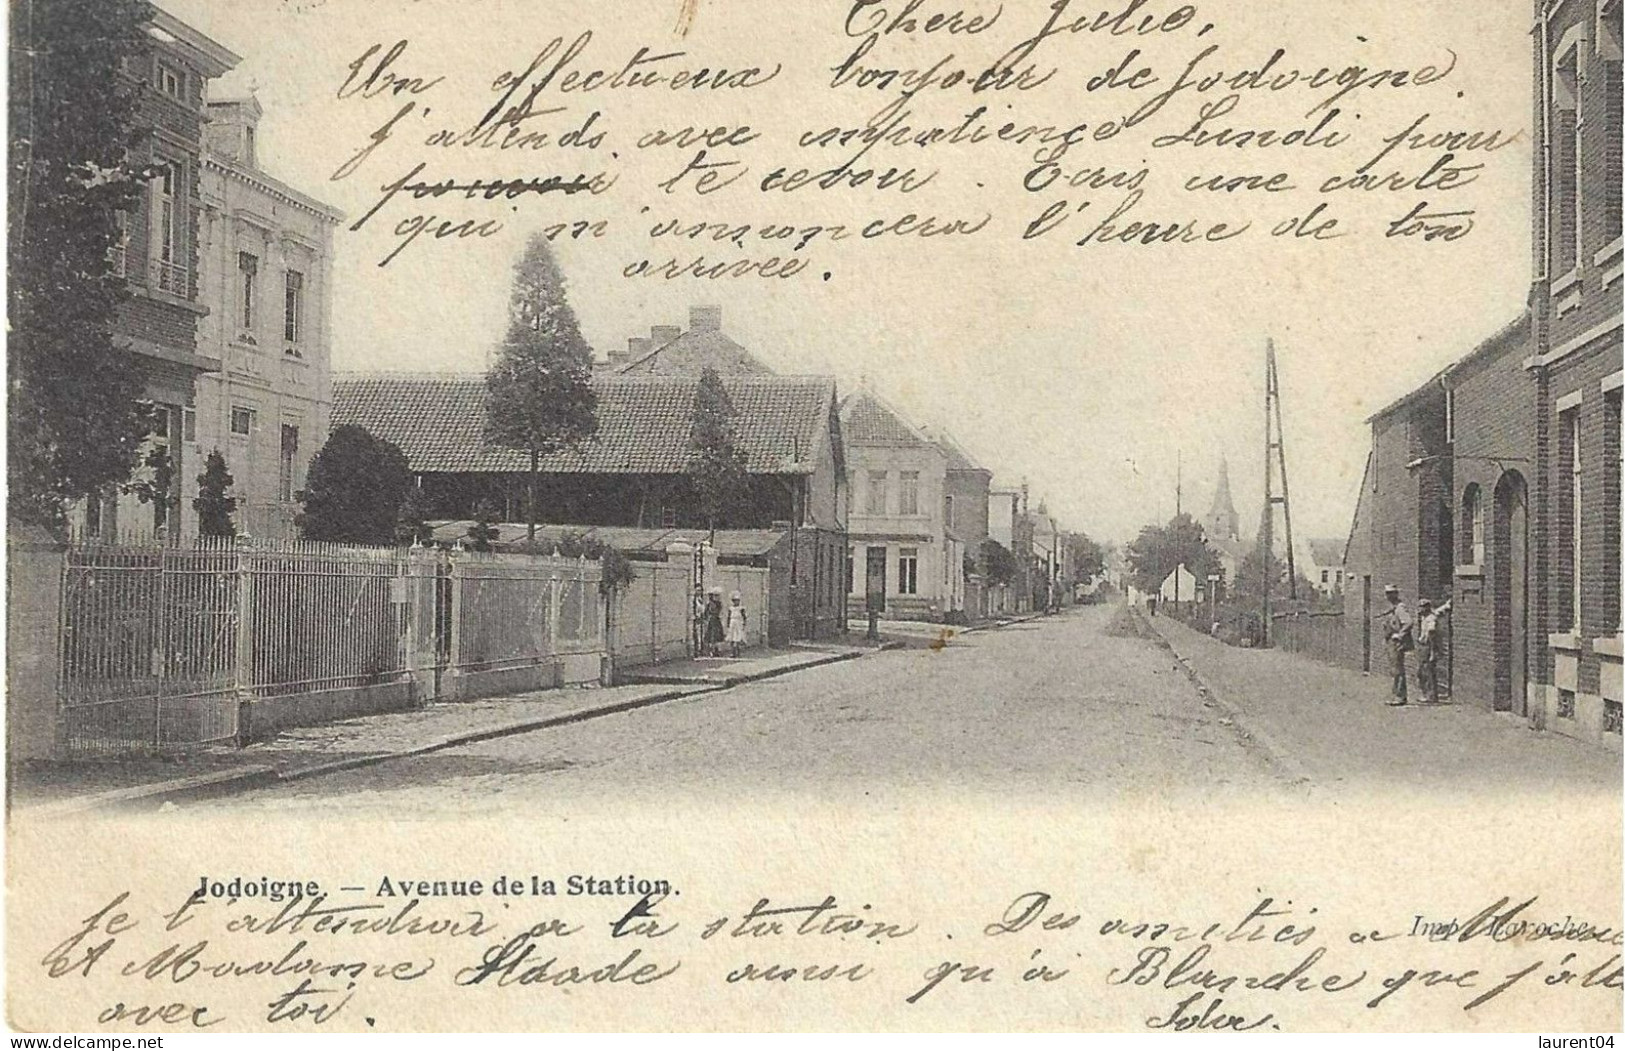 Chere Julie,
Un effectueux bonjour de Jodoigne.
J'attends avec impatience Lundi pour
pouvoir te revoir. Ecris une carte
qui m'annoncera l'heure de ton
arrivée.
Jodoigne. — Avenue de la Station.
Je t'attendrai a la station. Des amitiés a
Imp. Laroche
et Madame Staade ainsi qu'à Blanche que j'atte
avec toi.
delcampe.net
laurent04